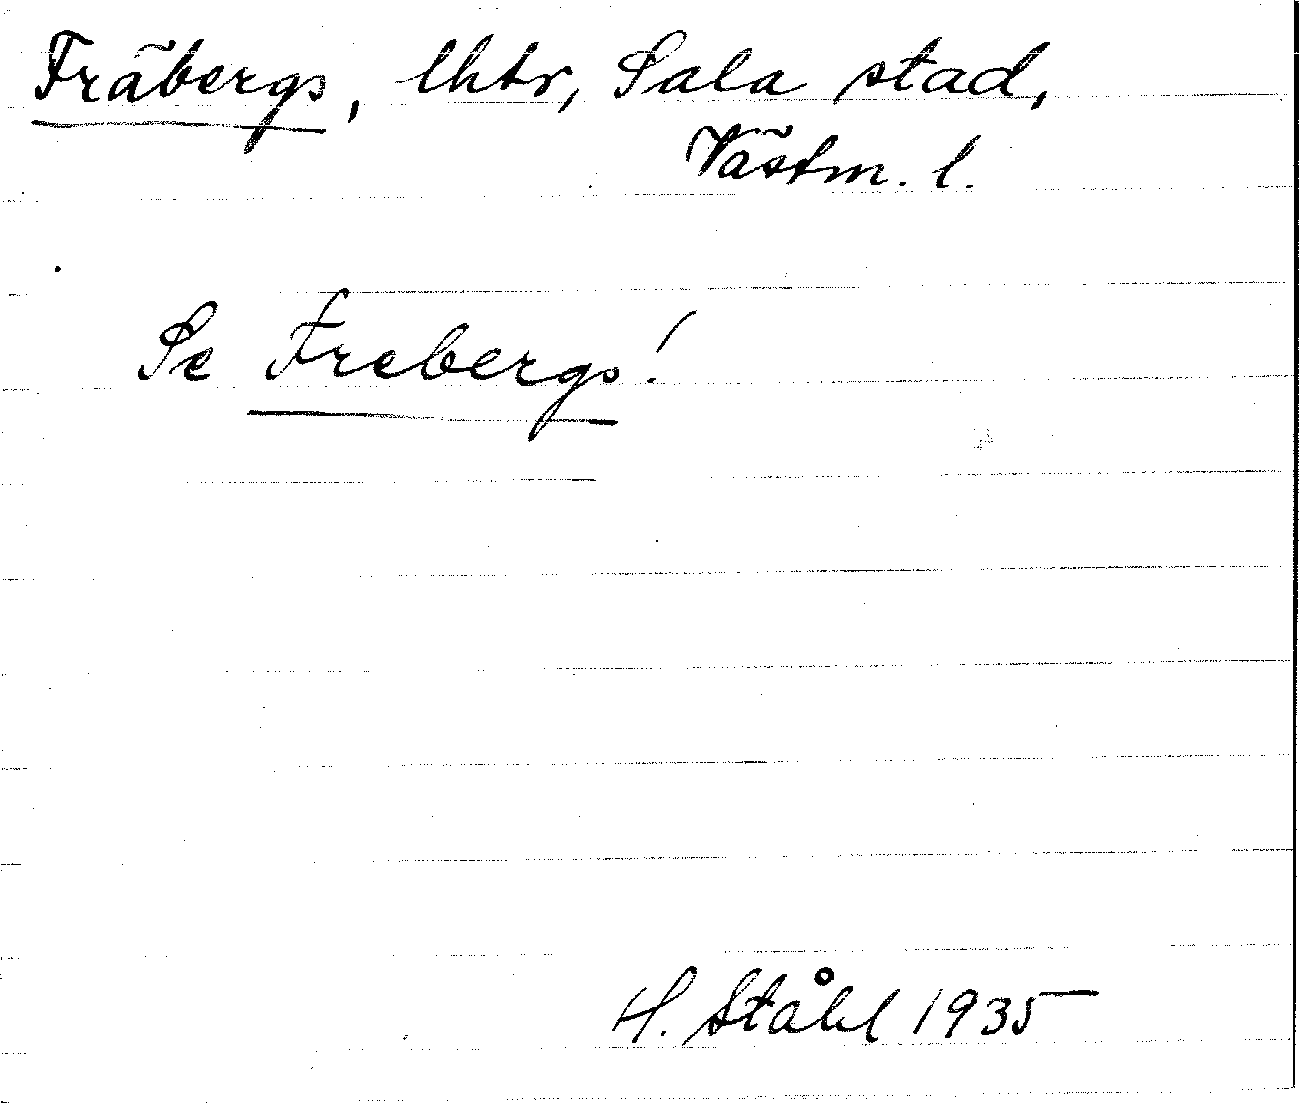 Fräbergs, lhtr, Sala stad,
Västm. l.
Se Frebergs!
H. Ståhl 1935